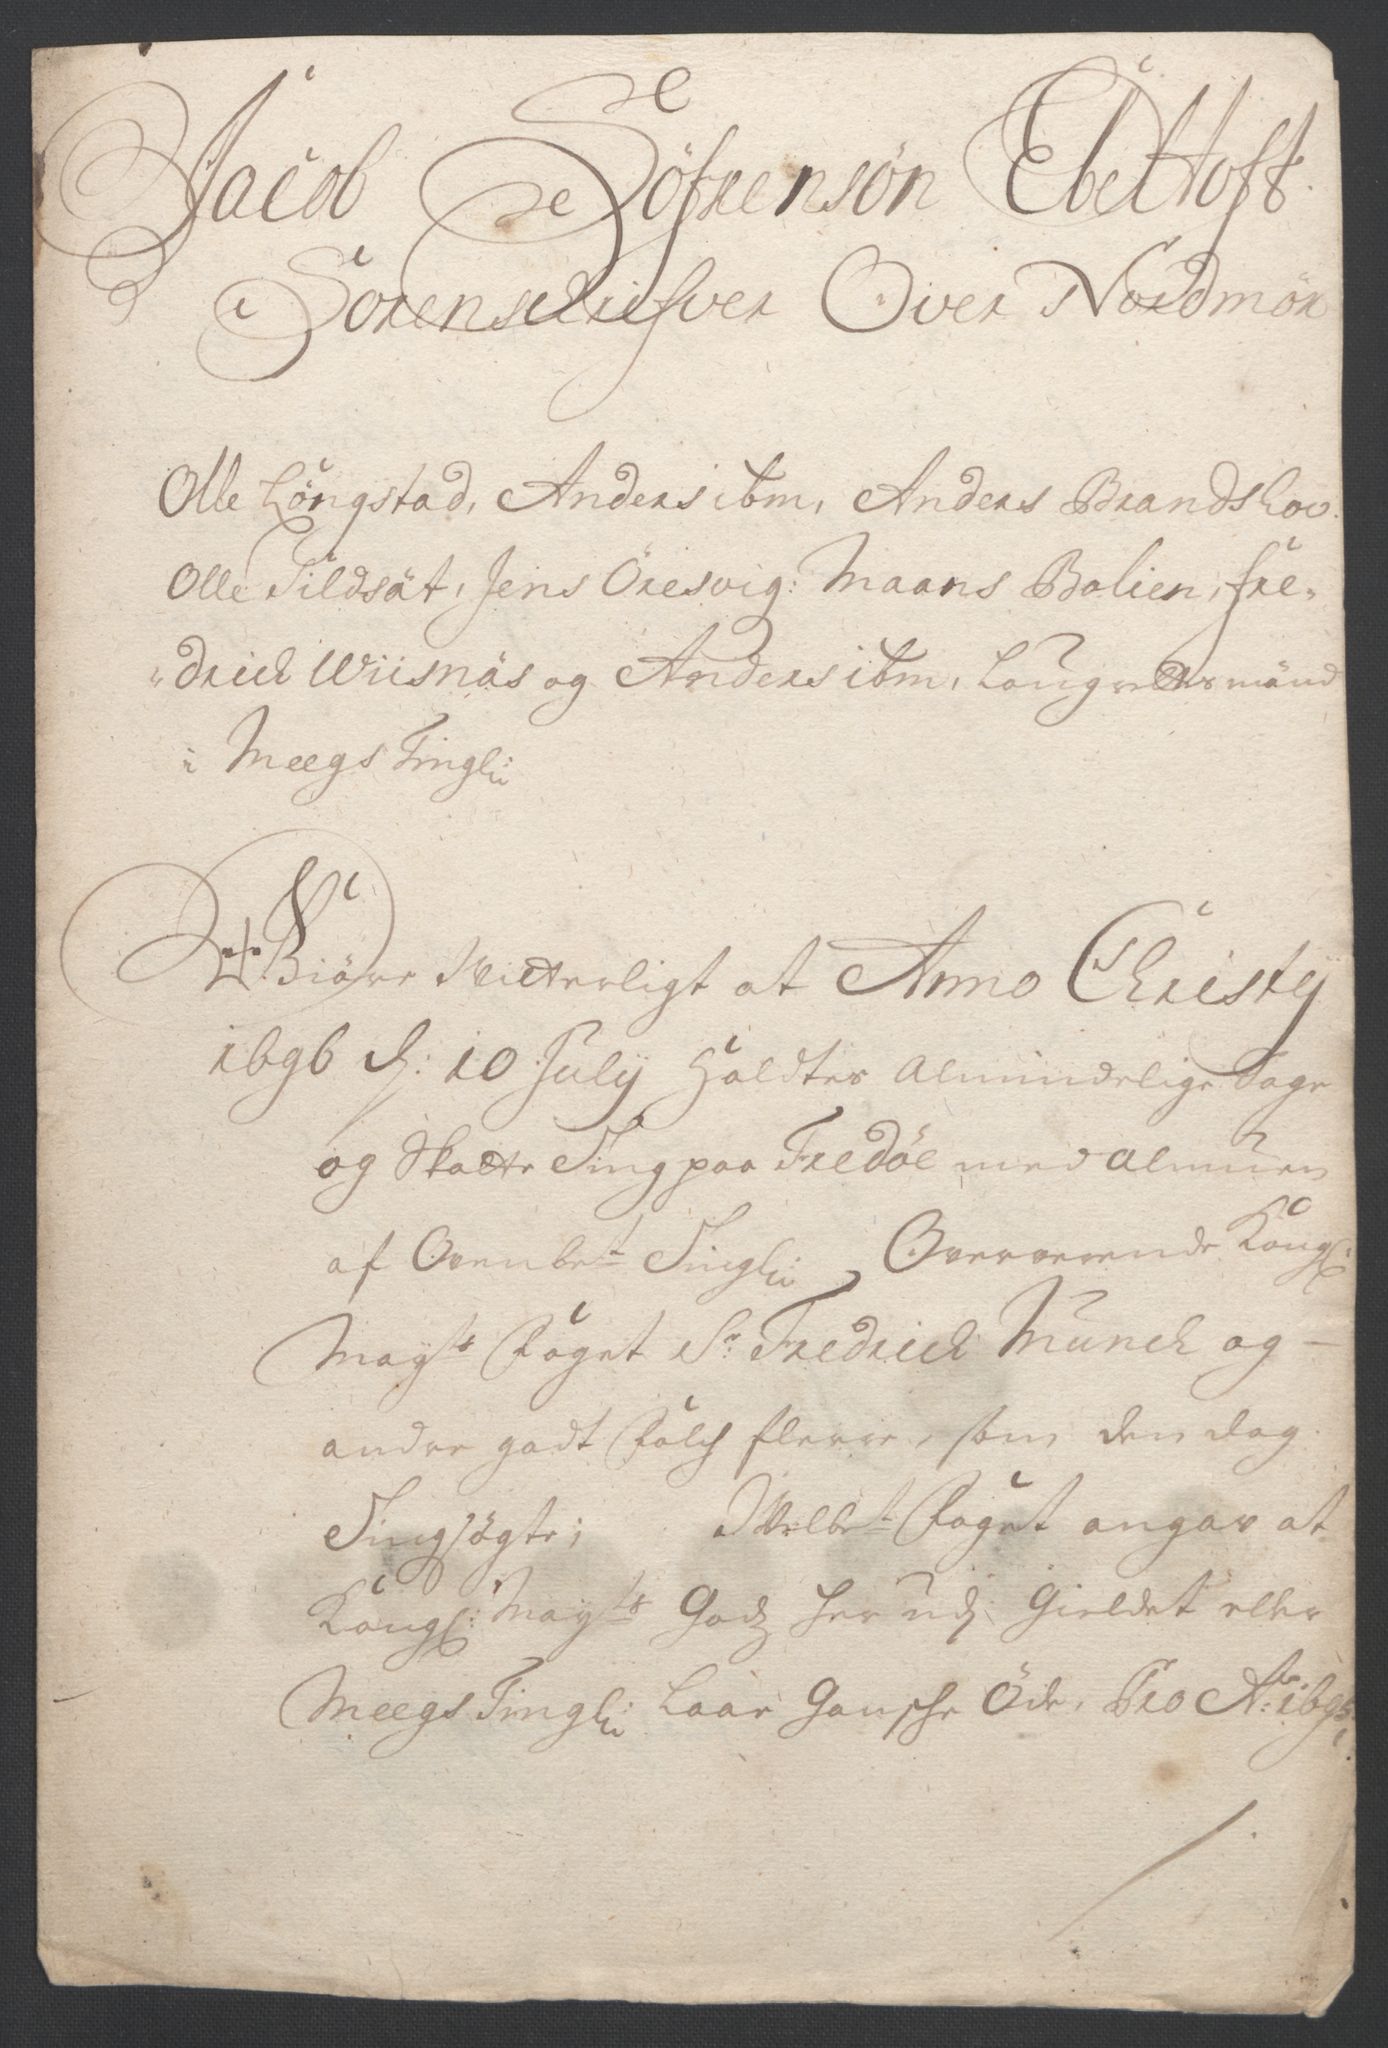 Jacob Söfrensön Ebeltoft
Sorenschrifver Over Nordmör
Olle Löngstad, Anders ibm, Anders Brandshov.
Olle Tildsät, Jens Öresvig: Maans Bolien, fre„
„drich Wiisnäs og Anders ibm, Laugrettesmänd
i Meegs Tingl:
Giöre Witterligt at Anno Christy
1696 d: 10 July Holdtes Almindelige Sage
og Skatte Ting paa Fredöe med Almuen
af Ovenbet Tingl: Oververende Kongl:
Mayts Foget Sr Fredrich Munch og –
andre godt Folch flerre, som den dag
Tingsögte; Welbete Foget angav at
Kongl: Mayts Godz her udj Gieldet eller
Meegs Tingl: Laae Gansche Öde, Pro Ao: 1695,